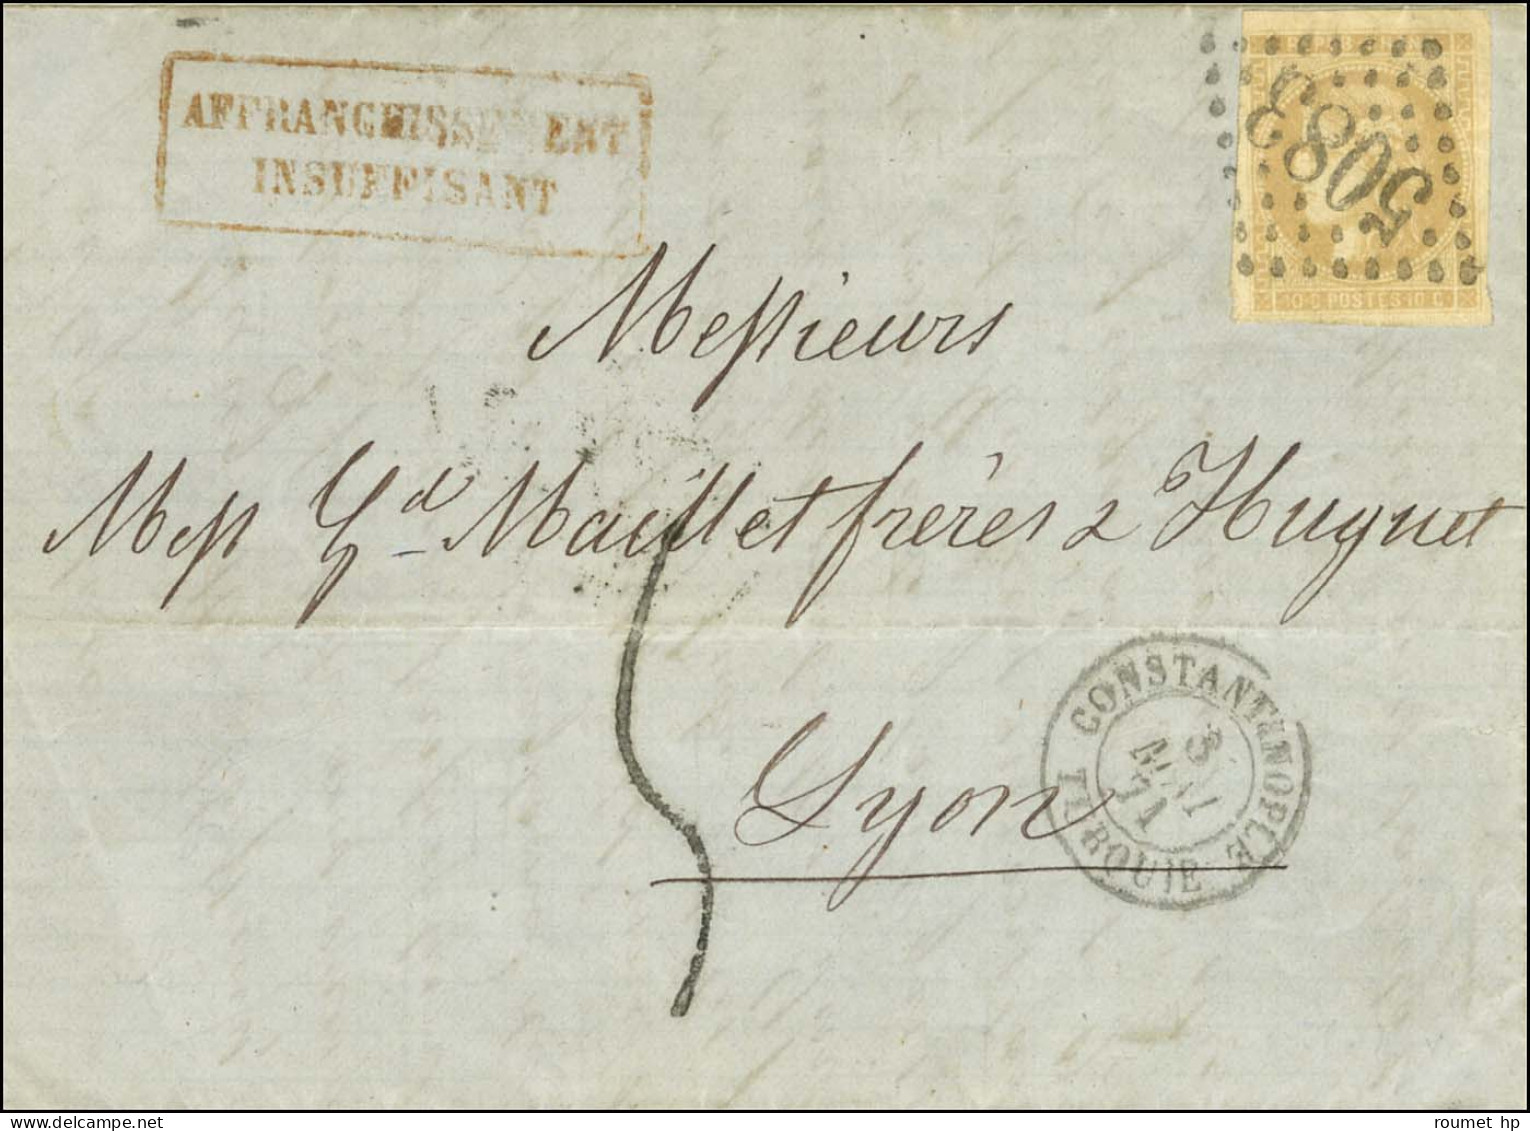 AFFRANCHISSEMENT
INSUFFISANT
5083
10 C POSTES 10 C
Messieurs
Mess Gd Maillet frères & Huguet
5
Lyon
CONSTANTINOPLE
3
MAI
71
TURQUIE
roumet hp